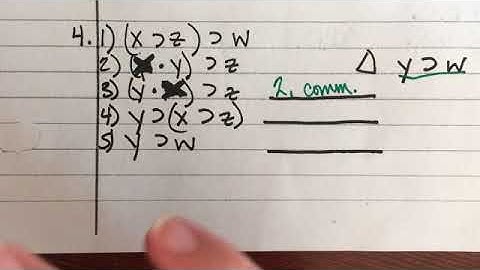 4. 1) (X ⊃ Z) ⊃ W
2) (X · Y) ⊃ Z
△ Y ⊃ W
3) (Y · X) ⊃ Z 2, comm.
4) Y ⊃ (X ⊃ Z)
5) Y ⊃ W